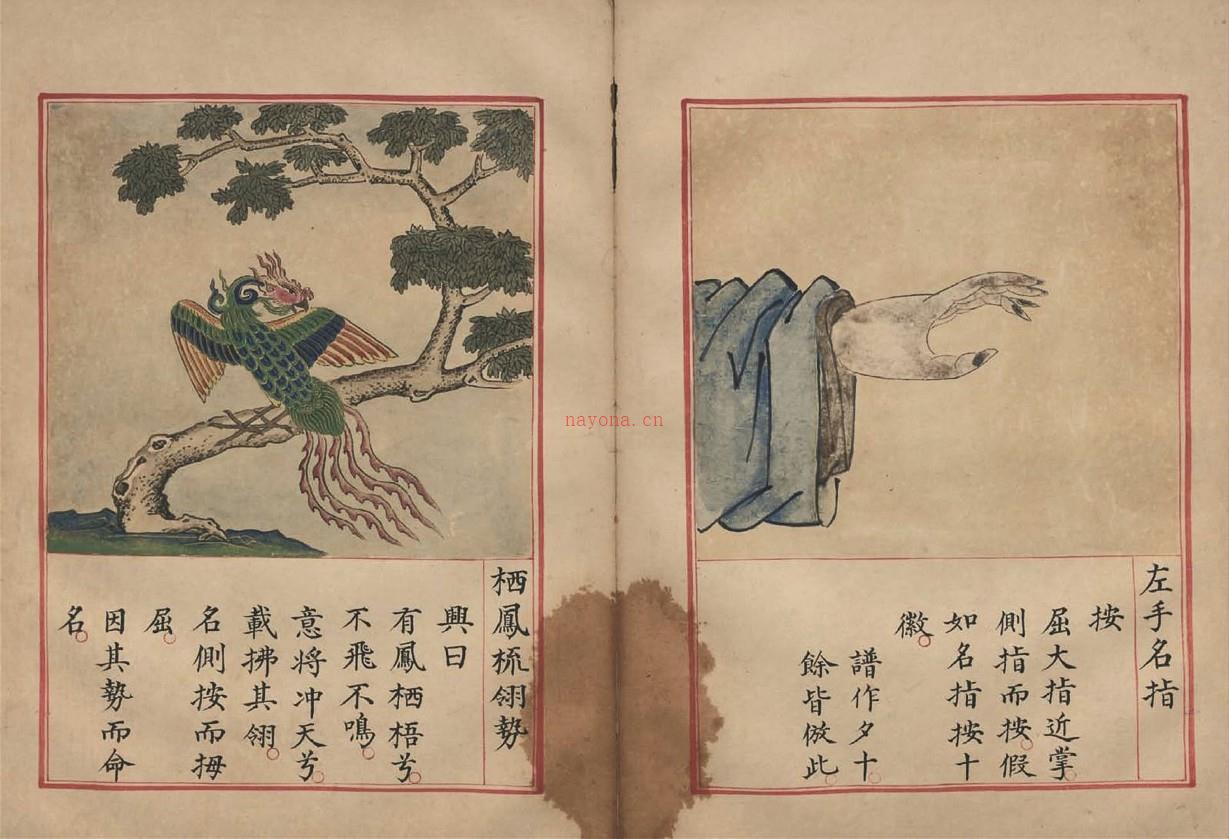 左手名指
按
屈大指近掌
側指而按假
如名指按十
徽
譜作夕十
餘皆倣此
栖鳳梳翎勢
興曰
有鳳栖梧兮
不飛不鳴
意將冲天兮
載拂其翎
名側按而拇
屈
因其勢而命
名
nayona.cn